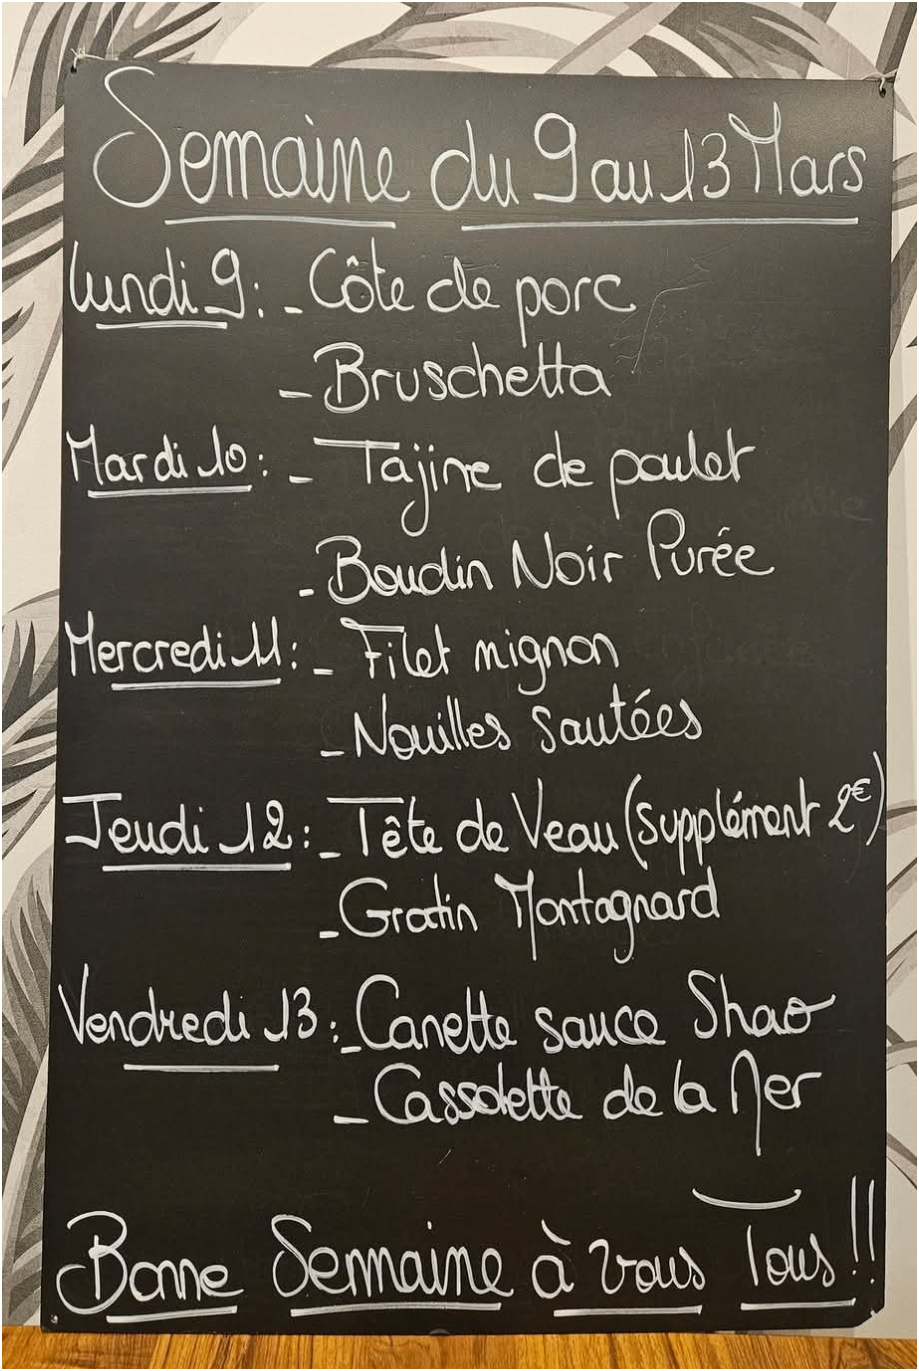 Semaine du 9 au 13 Mars
Lundi 9 : - Côte de porc
- Bruschetta
Mardi 10 : - Tajine de poulet
- Boudin Noir Purée
Mercredi 11 : - Filet mignon
- Nouilles Sautées
Jeudi 12 : - Tête de Veau (Supplément 2€)
- Gratin Montagnard
Vendredi 13 : - Canette sauce Shao
- Cassolette de la Mer
Bonne Semaine à vous Tous !!